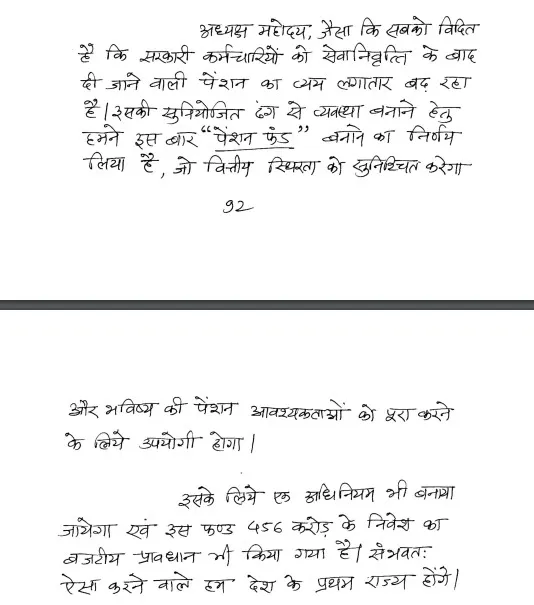 अध्यक्ष महोदय, जैसा कि सबको विदित
है कि सरकारी कर्मचारियों को सेवानिवृत्ति के बाद
दी जाने वाली पेंशन का व्यय लगातार बढ़ रहा
है। इसकी सुनियोजित ढंग से व्यवस्था बनाने हेतु
हमने इस बार “पेंशन फंड” बनाने का निर्णय
लिया है, जो वित्तीय स्थिरता को सुनिश्चित करेगा
92
और भविष्य की पेंशन आवश्यकताओं को पूरा करने
के लिये उपयोगी होगा।
इसके लिये एक अधिनियम भी बनाया
जायेगा एवं इस फण्ड 456 करोड़ के निवेश का
बजटीय प्रावधान भी किया गया है। संभवतः
ऐसा करने वाले हम देश के प्रथम राज्य होंगे।